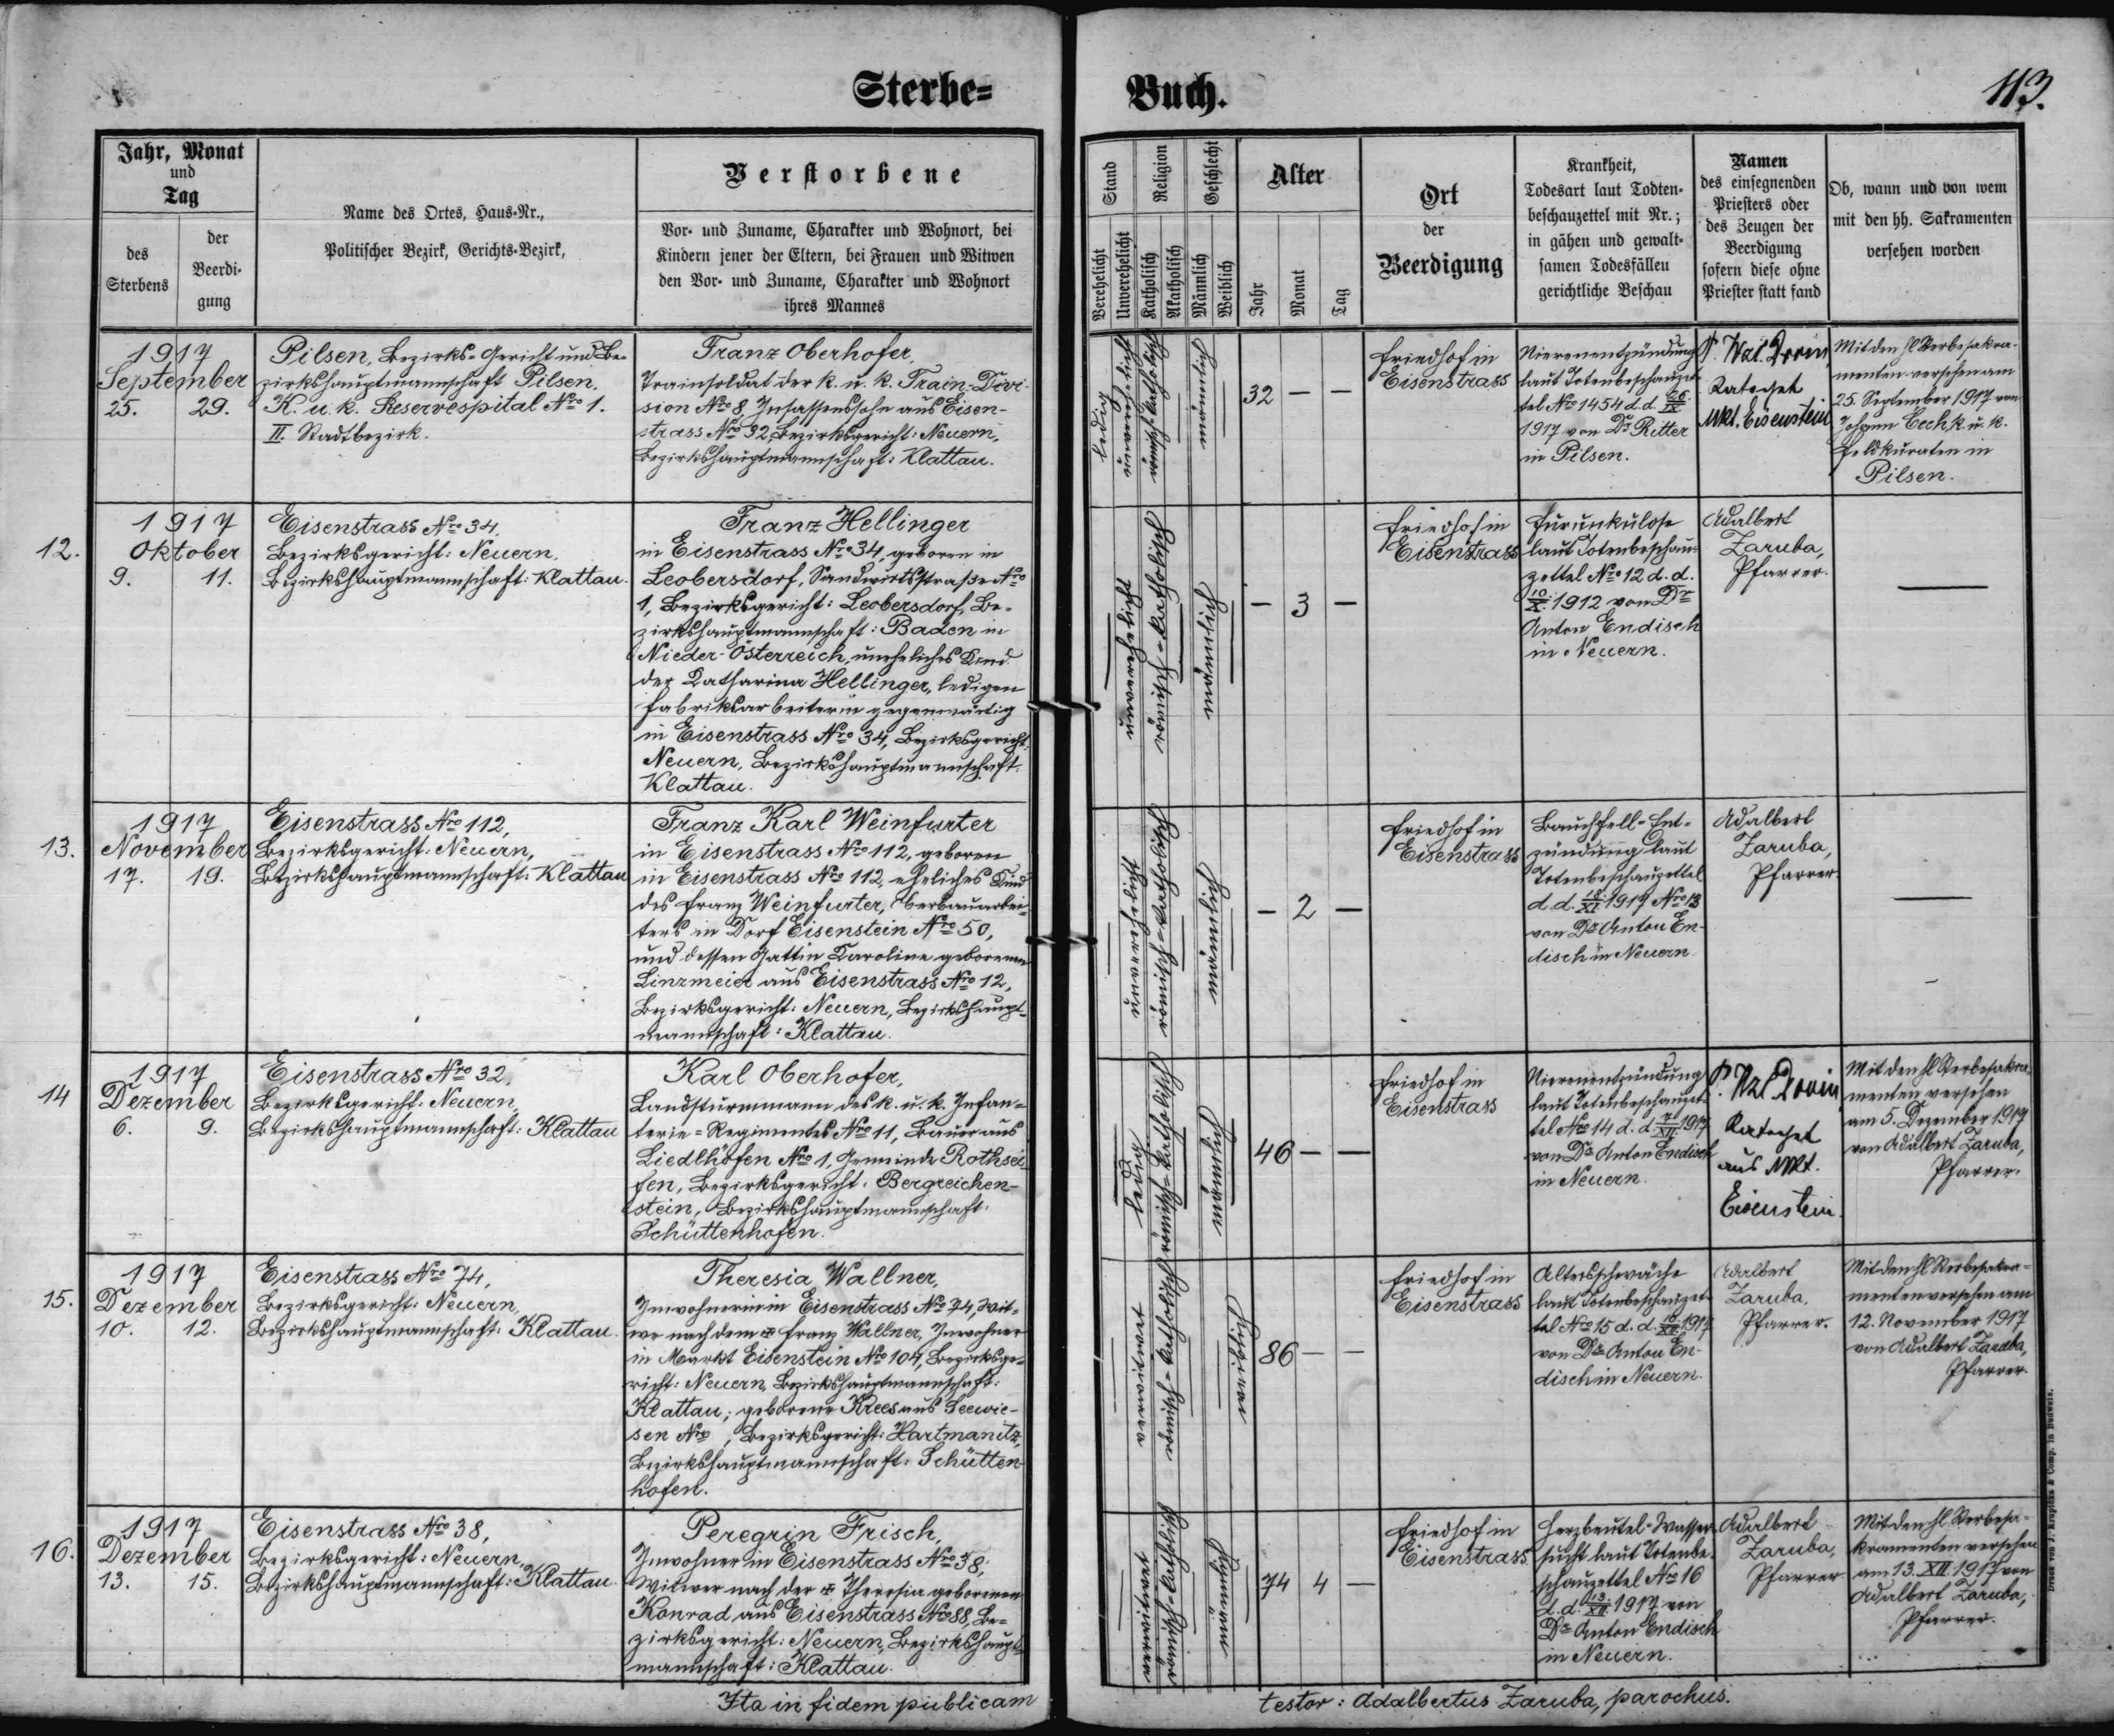 Sterbe=
Buch.
113.
Jahr, Monat
und
Tag
des
Sterbens
der
Beerdi-
gung
Name des Ortes, Haus-Nr.,
Politischer Bezirk, Gerichts-Bezirk,
Verstorbene
Vor- und Zuname, Charakter und Wohnort, bei
Kindern jener der Eltern, bei Frauen und Witwen
den Vor- und Zuname, Charakter und Wohnort
ihres Mannes
Stand
Religion
Geschlecht
Verehelicht
Unverehelicht
Katholisch
Akatholisch
Männlich
Weiblich
Alter
Jahr
Monat
Tag
Ort
der
Beerdigung
Krankheit,
Todesart laut Todten-
beschauzettel mit Nr.;
in gähen und gewalt-
samen Todesfällen
gerichtliche Beschau
Namen
des einsegnenden
Priesters oder
des Zeugen der
Beerdigung
sofern diese ohne
Priester statt fand
Ob, wann und von wem
mit den hh. Sakramenten
versehen worden
1917
September
25. 29.
Pilsen, Bezirks-Gericht und Be-
zirkshauptmannschaft Pilsen,
K. u. k. Reservespital Nro 1.
II. Stadtbezirk.
Franz Oberhofer,
Trainsoldat der k. u. k. Train-Divi-
sion Nro 8, Insassenssohn aus Eisen-
strass Nro 32, Bezirksgericht: Neuern,
Bezirkshauptmannschaft: Klattau.
ledig
unverehelicht
römisch-katholisch
männlich
32 — —
Friedhof in
Eisenstrass
Nierenentzündung
laut Totenbeschauzet-
tel Nro 1454 d. d. 26/IX
1917 von Dr Ritter
in Pilsen.
P.
Katechet
Mkt. Eisenstein
Mit den hl Sterbesakra-
menten versehen am
25. September 1917 von
Johann Cech k. u. k.
Feldkuraten in
Pilsen.
12.
1917
Oktober
9. 11.
Eisenstrass Nro 34,
Bezirksgericht: Neuern,
Bezirkshauptmannschaft: Klattau.
Franz Hellinger
in Eisenstrass Nro 34, geboren in
Leobersdorf, Sandwirtsstraße Nro
1, Bezirksgericht: Leobersdorf, Be-
zirkshauptmannschaft: Baden in
Nieder-Österreich, uneheliches Kind
der Katharina Hellinger, ledigen
Fabriksarbeiterin gegenwärtig
in Eisenstrass Nro 34, Bezirksgericht:
Neuern, Bezirkshauptmannschaft:
Klattau.
unverehelicht
römisch-katholisch
männlich
— 3 —
Friedhof in
Eisenstrass
Furunkulose
laut Totenbeschau-
zettel Nro 12 d. d.
10/X. 1912 von Dr
Anton Endisch
in Neuern.
Adalbert
Zaruba,
Pfarrer.
—
13.
1917
November
17. 19.
Eisenstrass Nro 112,
Bezirksgericht: Neuern,
Bezirkshauptmannschaft: Klattau
Franz Karl Weinfurter
in Eisenstrass Nro 112, geboren
in Eisenstrass Nro 112, eheliches Kind
des Franz Weinfurter, Oberbauarbei-
ters in Dorf Eisenstein Nro 50,
und dessen Gattin Karoline geborenen
Linzmeier aus Eisenstrass Nro 12,
Bezirksgericht: Neuern, Bezirkshaupt-
mannschaft: Klattau.
unverehelicht
römisch-katholisch
männlich
— 2 —
Friedhof in
Eisenstrass
Bauchfell-Ent-
zündung laut
Totenbeschauzettel
d. d. 18/XI. 1917 Nro 13
von Dr Anton En-
disch in Neuern.
Adalbert
Zaruba,
Pfarrer.
—
14
1917
Dezember
6. 9.
Eisenstrass Nro 32,
Bezirksgericht: Neuern,
Bezirkshauptmannschaft: Klattau
Karl Oberhofer,
Landsturmmann des k. u. k. Infan-
terie-Regimentes Nro 11, Bauer aus
Liedlhöfen Nro 1, Gemeinde Rothsei-
fen, Bezirksgericht: Bergreichen-
stein, Bezirkshauptmannschaft:
Schüttenhofen.
ledig
römisch-katholisch
männlich
46 — —
Friedhof in
Eisenstrass
Nierenentzündung
laut Totenbeschauzet-
tel Nro 14 d. d. 7/XII. 1917
von Dr Anton Endisch
in Neuern.
P.
Katechet
aus Mkt.
Eisenstein.
Mit den hl Sterbesakra-
menten versehen
am 5. Dezember 1917
von Adalbert Zaruba,
Pfarrer.
15.
1917
Dezember
10. 12.
Eisenstrass Nro 74,
Bezirksgericht: Neuern,
Bezirkshauptmannschaft: Klattau.
Theresia Wallner,
Inwohnerin in Eisenstrass Nro 74, Wit-
we nach dem + Franz Wallner, Inwohner
in Markt Eisenstein Nro 104, Bezirksge-
richt: Neuern, Bezirkshauptmannschaft:
Klattau; geborene Krees aus Seewie-
sen Nro , Bezirksgericht: Hartmanitz,
Bezirkshauptmannschaft: Schütten-
hofen.
verwitwet
römisch-katholisch
weiblich
86 — —
Friedhof in
Eisenstrass
Altersschwäche
laut Totenbeschauzet-
tel Nro 15 d. d. 10/XII. 1917
von Dr Anton En-
disch in Neuern.
Adalbert
Zaruba,
Pfarrer.
Mit den hl Sterbesakra-
menten versehen am
12. November 1917
von Adalbert Zaruba,
Pfarrer.
16.
1917
Dezember
13. 15.
Eisenstrass Nro 38,
Bezirksgericht: Neuern,
Bezirkshauptmannschaft: Klattau.
Peregrin Frisch,
Inwohner in Eisenstrass Nro 38;
Witwer nach der + Theresia geborenen
Konrad aus Eisenstrass Nro 88, Be-
zirksgericht: Neuern, Bezirkshaupt-
mannschaft: Klattau.
verwitwet
römisch-katholisch
männlich
74 4 —
Friedhof in
Eisenstrass
Herzbeutel-Wasser-
sucht laut Totenbe-
schauzettel Nro 16
d. d. 13/XII. 1917 von
Dr Anton Endisch
in Neuern.
Adalbert
Zaruba,
Pfarrer.
Mit den hl Sterbesa-
kramenten versehen
am 13. XII. 1917 von
Adalbert Zaruba,
Pfarrer.
Ita in fidem publicam
testor: Adalbertus Zaruba, parochus.
Druck von J. Krapitau & Comp. in Budweis.